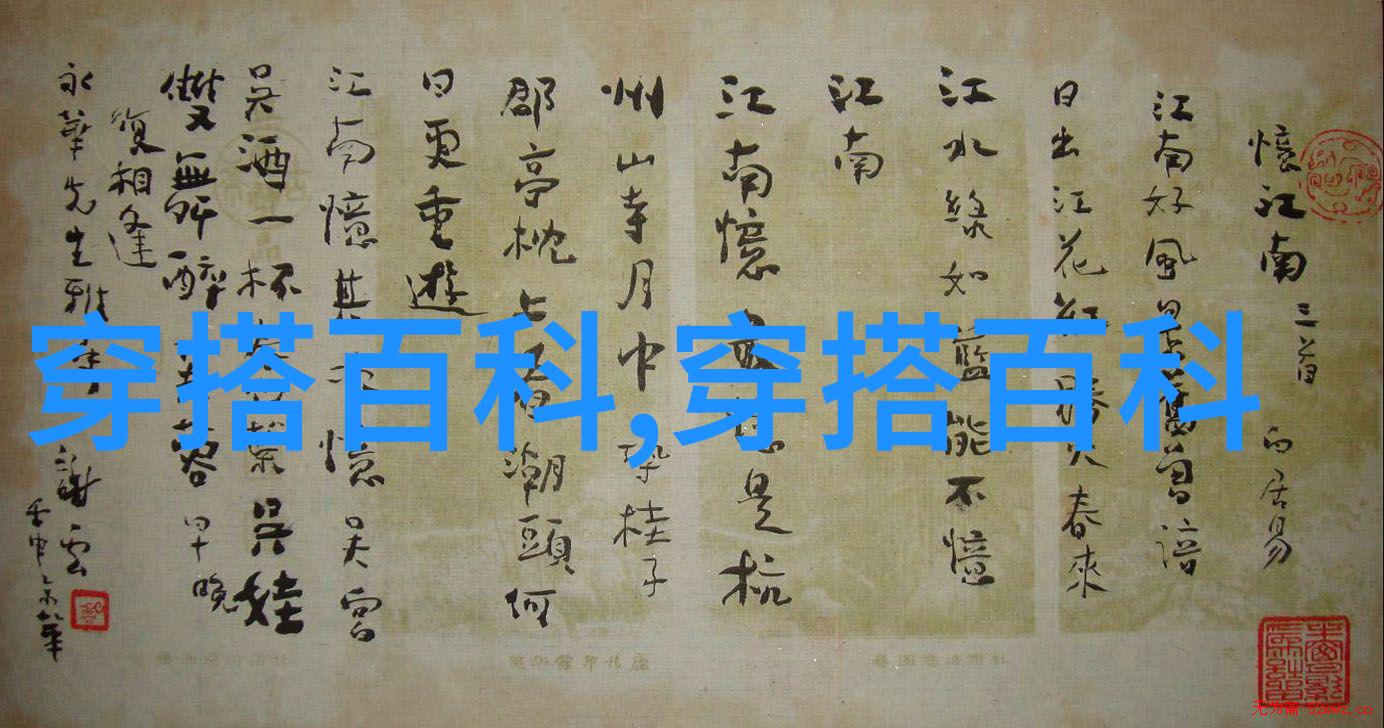 憶江南 三首 白居易
江南好風景舊曾諳
日出江花紅勝火春來
江水綠如藍能不憶
江南
江南憶最憶是杭
州山寺月中尋桂子
郡亭枕上看潮頭何
日更重遊
江南憶其次憶吳宮
吳酒一杯春竹葉吳娃
雙舞醉芙蓉早晚
復相逢
永華先生雅 謝雲
壬申
穿搭百科,穿搭百科